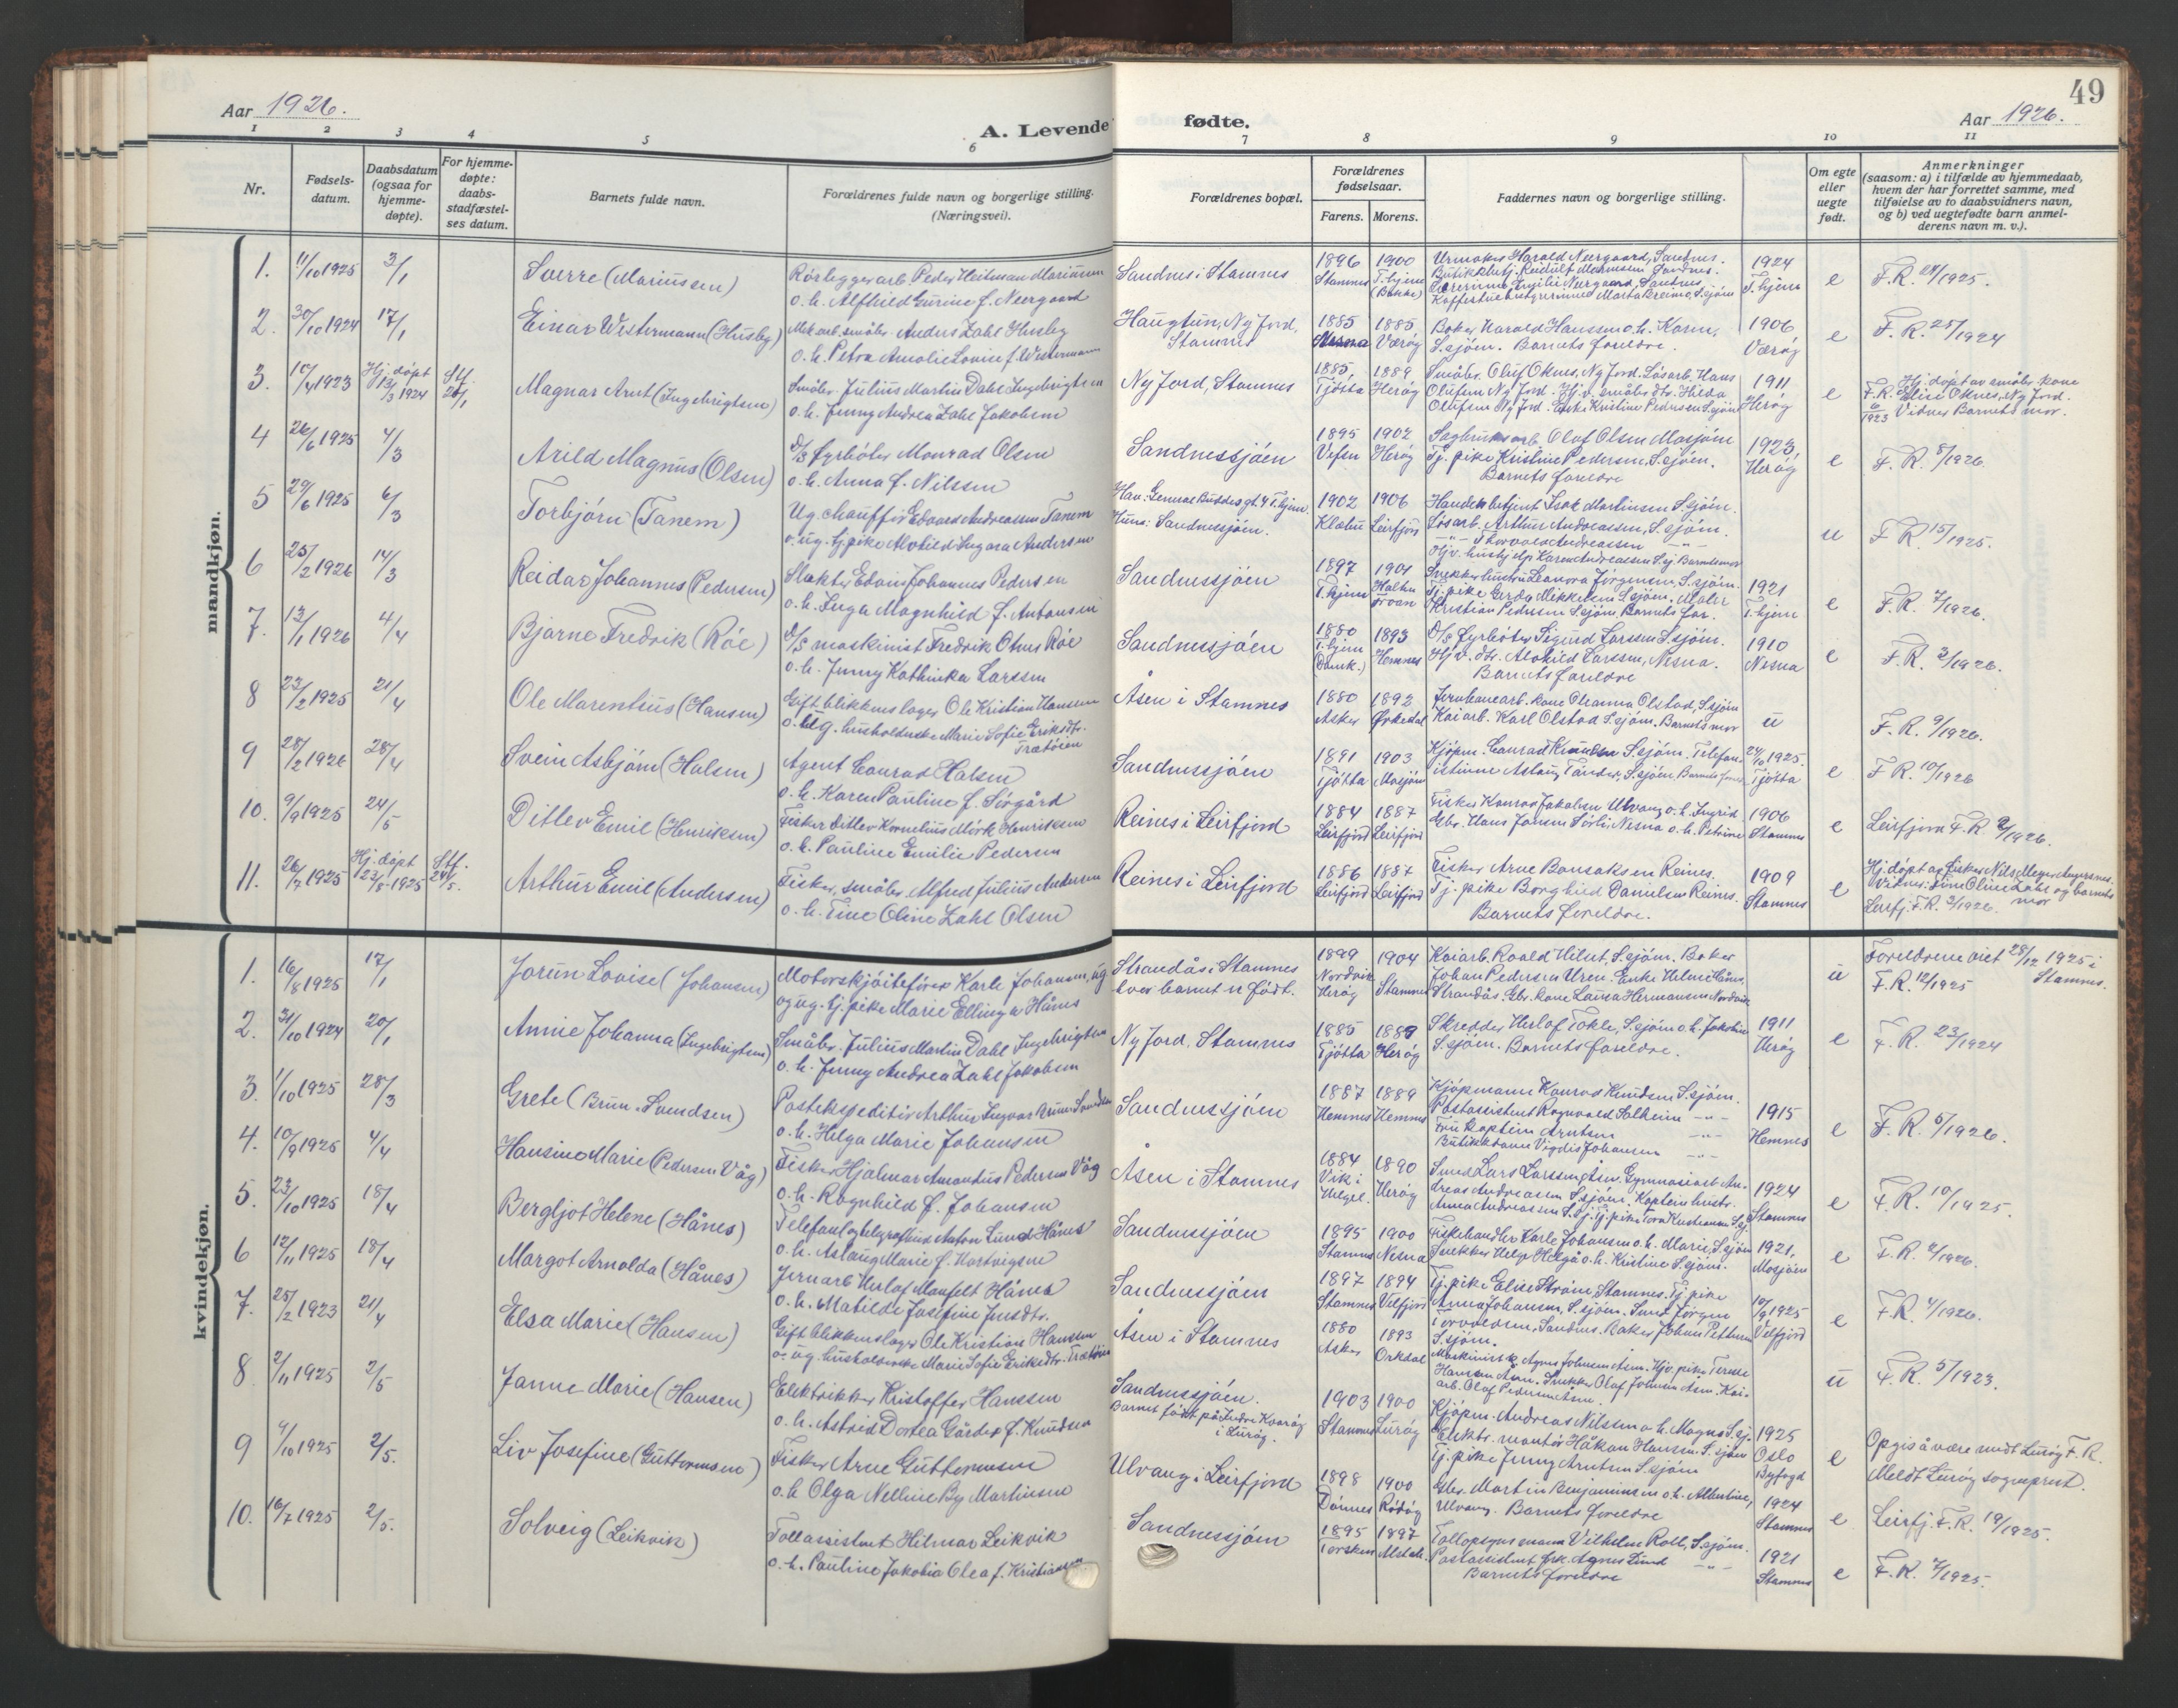 49
Aar 1926.
A. Levende fødte.
Aar 1926.
1 2 3 4 5 6 7 8 9 10 11
Nr.
Fødsels-
datum.
Daabsdatum
(ogsaa for
hjemme-
døpte).
For hjemme-
døpte:
daabs-
stadfæstel-
ses datum.
Barnets fulde navn.
Forældrenes fulde navn og borgerlige stilling.
(Næringsvei).
Forældrenes bopæl.
Forældrenes
fødselsaar.
Farens. Morens.
Faddernes navn og borgerlige stilling.
Om egte
eller
uegte
født.
Anmerkninger
(saasom: a) i tilfælde av hjemmedaab,
hvem der har forrettet samme, med
tilføielse av to daabsvidners navn,
og b) ved uegtefødte barn anmel-
derens navn m. v.).
mandkjøn.
1. 11/10 1925 3/1 Sverre (Mariussen) Rørleggerarb. Peder Heitman Mariussen
o. h. Alfhild Gurine f. Neergaard
Sandnes i Stamnes 1896 Stamnes 1900 T.hjem (Bakke)
Urmaker Harald Neergaard, Sandnes.
1924 T.hjem e F.R. 21/1925.
2. 30/10 1924 17/1 Einar Westermann (Husby) Mek.arb. småbr. Anders Zahl Husby
o. h. Petra Amalie Lovise f. Westermann
Haugtun, Ny Jord, Stamnes 1885 1885 Værøy
Baker Harald Hanssen o. h. Karen,
S.sjöen. Barnets foreldre.
1906 Værøy e F.R. 25/1924
3. 10/4 1923 Hj. döpt 13/3 1924 Stf. 24/1 Magnar Arnt (Ingebrigtsen) Småbr. Julius Martin Dahl Ingebrigtsen
o. h. Jenny Andrea Zahl Jakobsen
Ny Jord, Stamnes 1885. Tjötta 1889 Heröy
Småbr. Oluf Oknes, Ny Jord. Lösarb. Hans
Olufsen Ny Jord. Hj.v. småbr.dtr. Hilda
Olufsen Ny Jord. Enke Kristine Pedersen S.sjöen
1911 Heröy e Hj. döpt av småbr. kone
F.R. Elise Oknes, Ny Jord.
6/1923 Vidner Barnets mor.
4 26/6 1925 4/3 Arild Magnus (Olsen) D/S fyrböter Monrad Olsen
o. h. Anna f. Nilssen
Sandnessjöen 1895 Vefsn 1902 Heröy
Sagbruksarb. Olaf Olsen Mosjöen
Tj. pike Kristine Pedersen, S.sjöen.
Barnets foreldre
1923, Heröy e F.R. 8/1926.
5 29/6 1925 6/3 Torbjörn (Tanem) Ug. chaufför Edvard Andreassen Tanem
o. ug. tj. pike Alvhild Ingara Andersen
Hun: Sandnessjöen. 1902 Klæbu 1906 Leirfjord
Handelsbetjent Isak Martinsen S.sjöen.
Lösarb. Arthur Andreassen, S.sjöen.
u F.R. 15/1925.
6 25/2 1926 14/3 Reidar Johannes (Pedersen) Slakter Edvin Johannes Pedersen
o. h. Inga Magnhild f. Antonsen
Sandnessjöen 1897 T.hjem 1901
Snekkerhustru Leonora Jörgensen, S.sjöen.
Tj. pike Gerda Mikkelsen S.sjöen. Maler
Kristian Pedersen S.sjöen. Barnets far.
1921 T.hjem e F.R. 7/1926.
7. 13/1 1926 4/4 Bjarne Fredrik (Röe) D/S maskinist Fredrik Otnes Röe
o. h. Jenny Kathinka Larssen
Sandnessjöen 1880 T.hjem (Domk.) 1893 Hemnes
D/S fyrböter Sigurd Larssen S.sjöen.
Hj.v. dtr. Alvhild Larssen, Nesna.
Barnets foreldre
1910 Nesna e F.R. 2/1926.
8 23/2 1925 21/4 Ole Marentius (Hansen) Gift blikkenslager Ole Kristian Hansen
o. ug. husholderske Marie Sofie Eriksdtr. Trætöien
Åsen i Stamnes 1880 Asker 1892 Orkedal
Jernbanearb. kone Oleanna Olstad, S.sjöen
Kaiarb. Karl Olstad S.sjöen. Barnets mor
u F.R. 9/1926.
9 28/2 1926 28/4 Svein Asbjörn (Halsen) Agent Conrad Halsen
o. h. Karen Pauline f. Sivgård
Sandnessjöen 1891 Tjötta 1903 Mosjöen
Kjöpm. Conrad Knudsen S.sjöen. Telefon-
istinne Aslaug Tander, S.sjöen. Barnets foreldre
24/10 1925. Tjötta e F.R. 10/1926
10. 9/9 1925 24/5 Ditlev Emil (Henriksen) Fisker Ditlev Kornelius Mörk Henriksen
o. h. Pauline Emilie Pedersen
Reines i Leirfjord 1884 Leirfjord 1887 Leirfjord
Fisker Konrad Jakobsen Ulvang o. h. Ingrid
Gbr. Hans Jansen Sörli, Nesna o. h. Petrine
1906 Stamnes e Leirfjord F.R. 2/1926.
11. 26/7 1925 Hj. döpt 23/8 1925 Stf. 24/5. Arthur Emil (Andersen) Fisker, småbr. Alfred Julius Andersen
o. h. Tine Oline Zahl Olsen
Reines i Leirfjord 1886 Leirfjord 1887 Leirfjord
Fisker Arne Bonsaksen Reines.
Tj. pike Borghild Danielsen Reines.
Barnets foreldre.
1909 Stamnes e Hj. döpt av fisker Nils Meyer
Vidner: Tine Oline Zahl og barnets mor
Leirfj. F.R. 3/1926.
kvindekjøn.
1. 16/8 1925 17/1 Jorun Lovise (Johansen) Motorskjöitefører Karle Johansen, ug
og ug. tj. pike Marie Ellinga Hånes
Strandås i Stamnes
hvor barnet er födt. 1899 Nordvik Heröy 1904 Stamnes
Kaiarb. Roald Hilset, S.sjöen. Baker
Johan Pedersen Uren. Enke Helene Hånes,
Strandås. Gbr. kone Laura Hermansen Nordvik
u Foreldrene viet 28/12 1925 i Stamnes.
F.R. 12/1925
2. 31/10 1924 20/1 Annie Johanna (Ingebrigtsen) Småbr. Julius Martin Dahl Ingebrigtsen
o. h. Jenny Andrea Zahl Jakobsen
Ny Jord, Stamnes 1885 Tjötta 1889 Heröy
Skredder Herlof Tokle, S.sjöen o. h. Jakobine
S.sjöen. Barnets foreldre.
1911 Heröy e F.R. 23/1924
3. 1/10 1925 28/3 Grete (Brun-Svendsen) Postekspeditör Arthur Ingvar Brun Svendsen
o. h. Helga Marie Johansen
Sandnessjöen 1887 Hemnes 1889 Hemnes
Kjöpmann Konrad Knudsen S.sjöen.
Postassistent Ragnvald Solheim -"-
Fru Kaptein Arntsen -"-
Butikkdame Vigdis Johansen -"-
1915 Hemnes e F.R. 5/1926.
4. 10/9 1925 4/4 Hansine Marie (Pedersen Våg) Fisker Hjalmar Amandus Pedersen Våg
o. h. Ragnhild f. Johansen
Åsen i Stamnes 1884 Vik i Helgel. 1890 Heröy
Smed Lars Larssen Åsen. Gymnasiast An-
dreas Andreassen S.sjöen. Kaptein hustr.
Anna Andreassen S.sj. Tj. pike Tora Kristiansen S.sj.
1924 Stamnes e F.R. 10/1925.
5. 23/10 1925 18/4 Bergljot Helene (Hånes) Telefon og telegrafbud Anton Lund Hånes
o. h. Aslaug Marie f. Hartvigsen
Sandnessjöen 1895 Stamnes 1900 Nesna
Fiskehandler Karle Johansen o. h. Marie, S.sjöen
Snekker Helge Helgå o. h. Kristine S.sjöen.
1921. Mosjöen e F.R. 2/1926.
6 12/11 1925 18/4 Margot Arnolda (Hånes) Jernarb. Herlof Manfelt Hånes
o. h. Matilde Josefine Jensdtr.
Sandnessjöen 1897 Stamnes 1894 Velfjord
Tj. pike Elise Ström, Stamnes. Tj. pike
Anna Johansen, S.sjöen. Smed Jörgen
Torvaldsen, Sandnes. Baker Johan Pettersen
S.sjöen.
10/9 1925 Velfjord e F.R. 4/1926.
7. 25/2 1923 21/4 Elsa Marie (Hansen) Gift blikkenslager Ole Kristian Hanssen
o. ug. husholderske Marie Sofie Eriksdtr. Trætöien
Åsen i Stamnes 1880 Asker 1893 Orkdal
Maskinist k. Agnes Johnsen Åsen. Hjv. pike Terese
Hansen Åsen. Snekker Olaf Johnsen Åsen. Kai-
arb. Olaf Pedersen Åsen.
u F.R. 5/1923.
8 2/11 1925 2/5 Janne Marie (Hansen) Elektriker Kristoffer Hanssen
o. h. Astrid Dortea Gårder f. Knudsen
Sandnessjöen.
Barnet födt på Indre Kvaröy
i Luröy. 1903 Stamnes 1900 Luröy
Kjöpm. Andreas Nilssen o. h. Magna S.sj.
Elektr. montör Håkon Hansen, S.sjöen
Tj. pike Jenny Arntsen S.sjöen
1925 Oslo Byfogd e Opgis å være meldt Luröy F.R.
Meldt Luröy sogneprest.
9 4/10 1925 2/5. Liv Josefine (Guttormsen) Fisker Arne Guttormsen
o. h Olga Nelline By Martinsen
Ulvang i Leirfjord 1898 Dönnes 1900 Rödöy
Gbr. Martin Benjaminsen o. h. Albertine,
Ulvang. Barnets foreldre
1924 Stamnes e Leirfj. F.R. 19/1925.
10. 16/7 1925 2/5. Solveig (Leikvik) Tollassistent Hilmar Leikvik
o. h. Pauline Jakobia Olea f. Kristiansen
Sandnessjöen 1895 Torsken 1897 Alstah.
Tollopsynsmann Vilhelm Roll, S.sjöen.
Postassistent frk. Agnes Lund -"-
Barnets foreldre
1921 Stamnes e F.R. 7/1925.